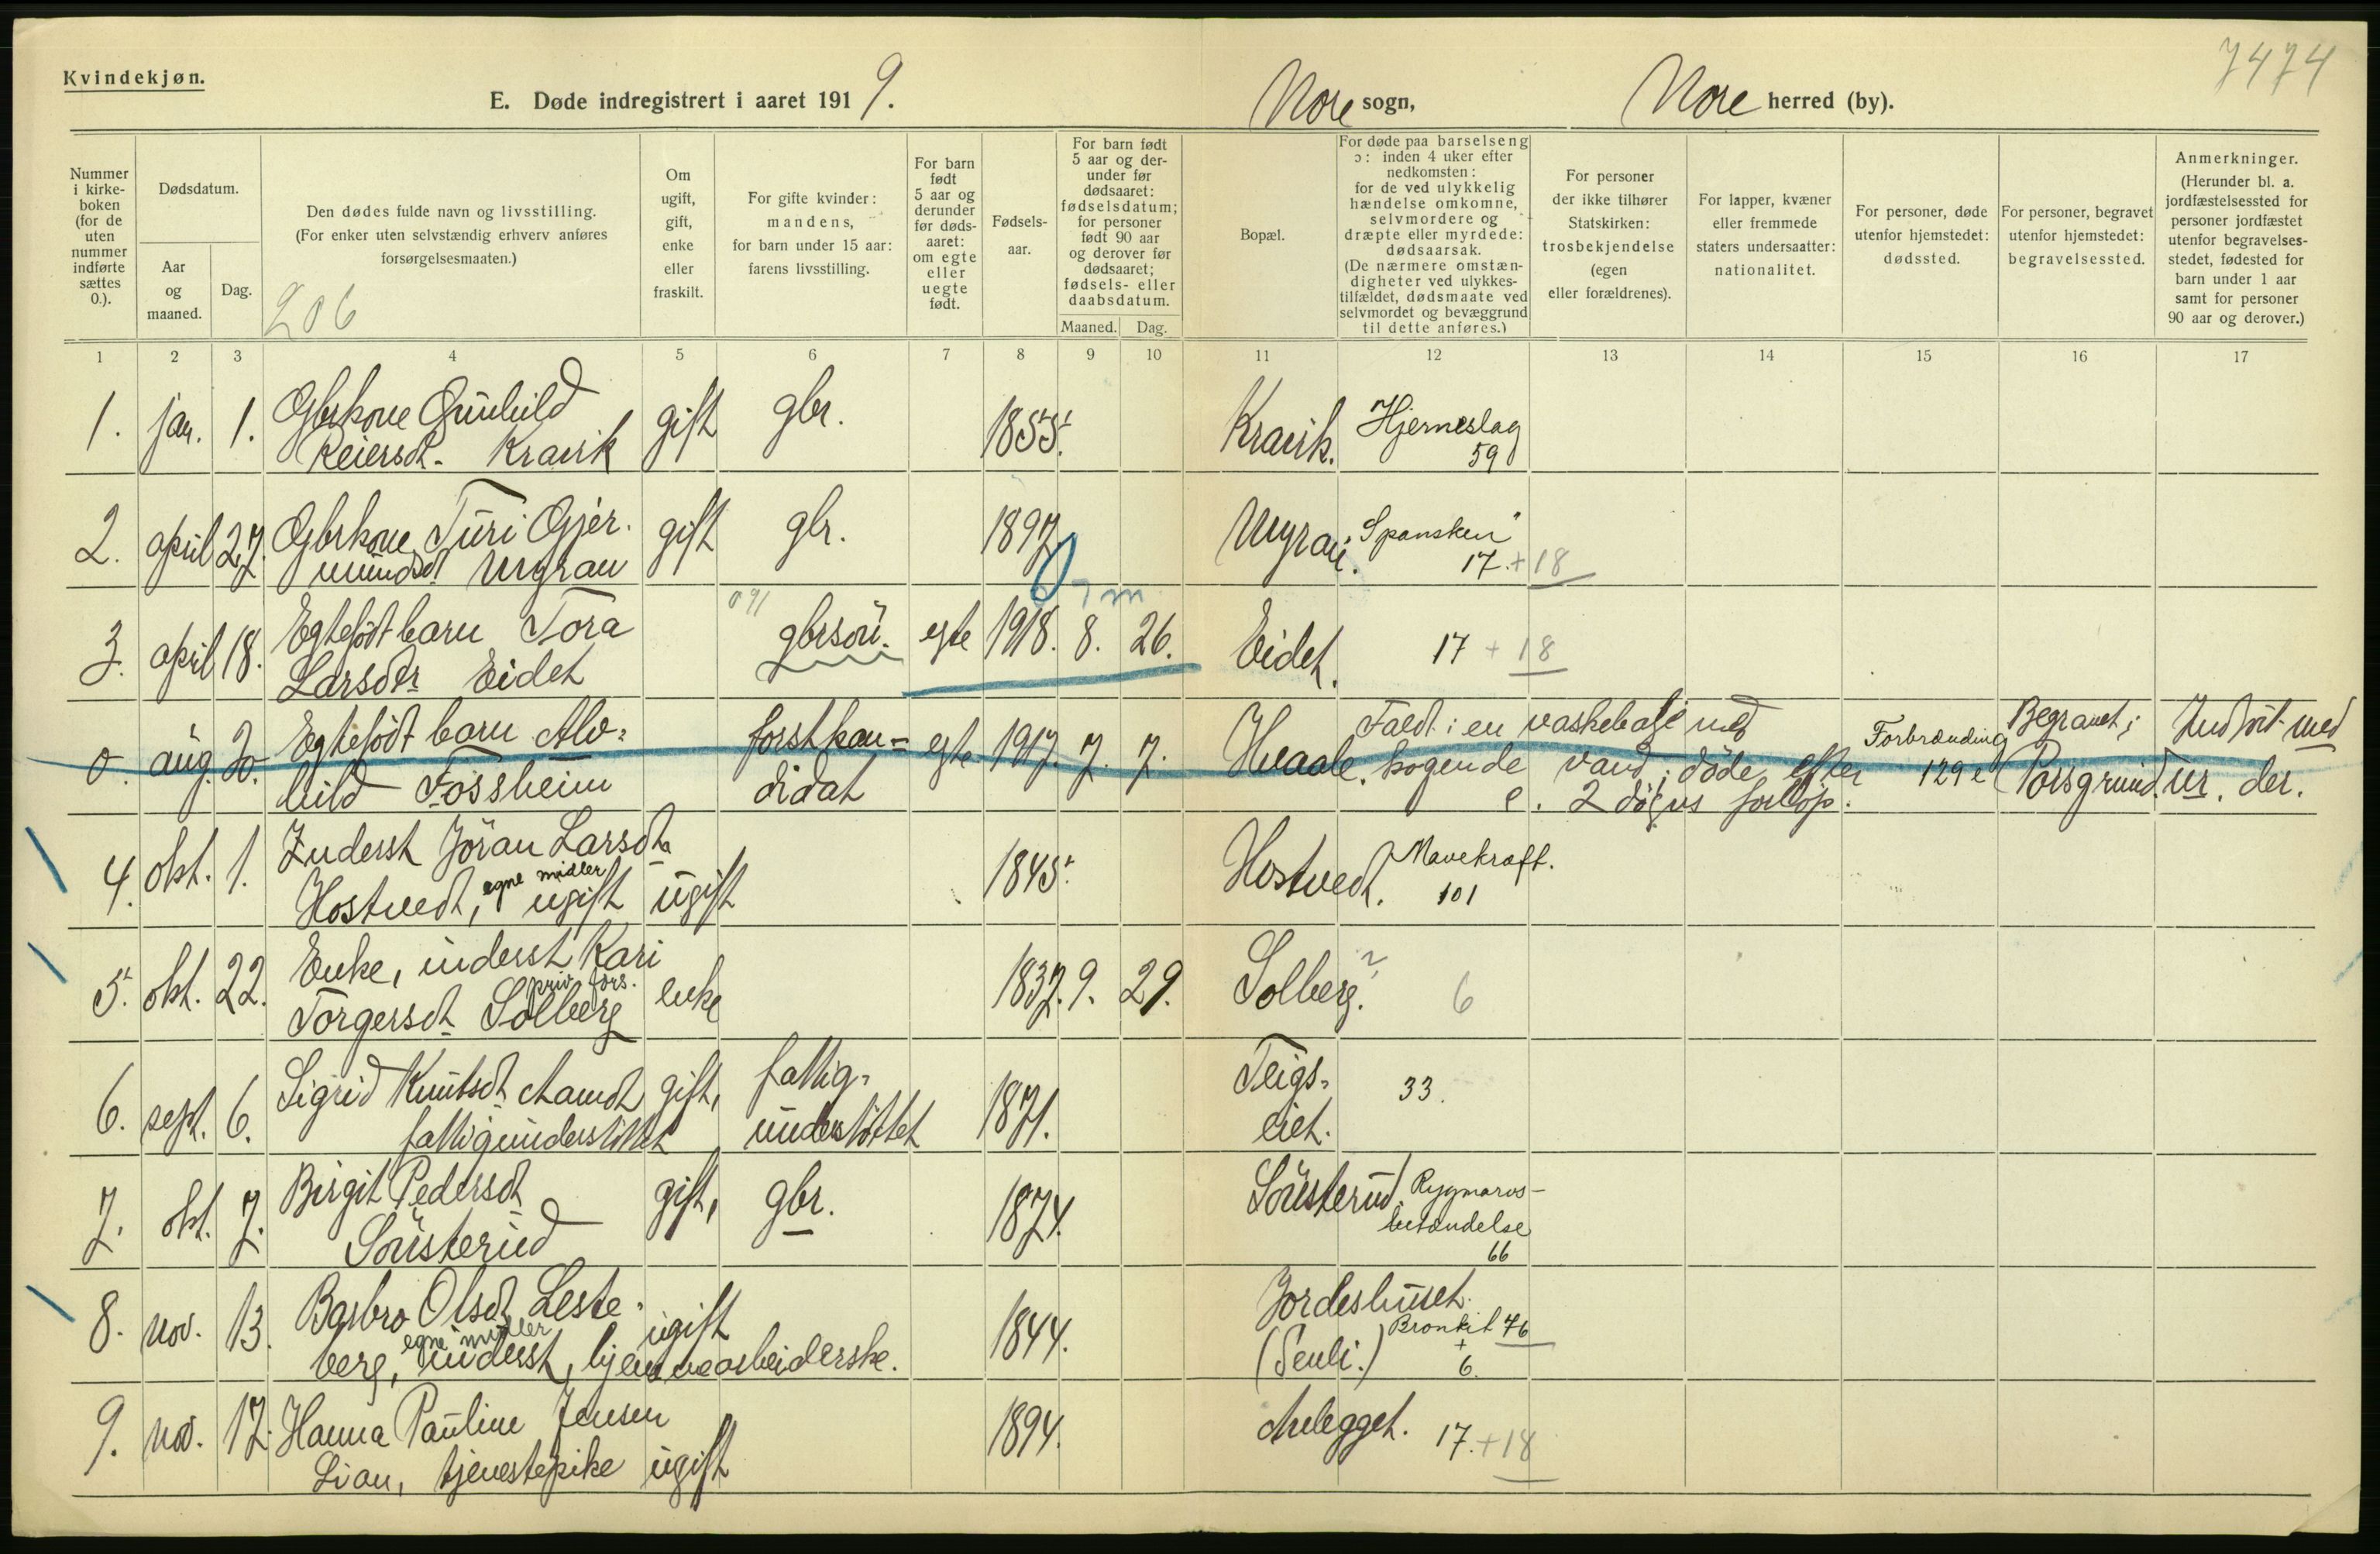 7474
Kvindekjøn.
E. Døde indregistrert i aaret 1919. Nore sogn, Nore herred (by).
Nummer i kirke- boken (for de uten nummer indførte sættes 0.).
Dødsdatum.
Aar og maaned.
Dag.
Den dødes fulde navn og livsstilling.
(For enker uten selvstændig erhverv anføres
forsørgelsesmaaten.)
206
Om ugift, gift, enke eller fraskilt.
For gifte kvinder:
mandens,
for barn under 15 aar:
farens livsstilling.
For barn født 5 aar og derunder før døds- aaret: om egte eller uegte født.
Fødsels- aar.
For barn født 5 aar og der- under før dødsaaret: fødselsdatum; for personer født 90 aar og derover før dødsaaret; fødsels- eller daabsdatum.
Maaned. Dag.
Bopæl.
For døde paa barselseng ɔ: inden 4 uker efter nedkomsten: for de ved ulykkelig hændelse omkomne, selvmordere og dræpte eller myrdede: dødsaarsak.
(De nærmere omstæn- digheter ved ulykkes- tilfældet, dødsmaate ved selvmordet og bevæggrund til dette anføres.)
For personer der ikke tilhører Statskirken: trosbekjendelse (egen eller forældrenes).
For lapper, kvæner eller fremmede staters undersaatter: nationalitet.
For personer, døde utenfor hjemstedet: dødssted.
For personer, begravet utenfor hjemstedet: begravelsessted.
Anmerkninger.
(Herunder bl. a. jordfæstelsessted for personer jordfæstet utenfor begravelses- stedet, fødested for barn under 1 aar samt for personer 90 aar og derover.)
1 2 3 4 5 6 7 8 9 10 11 12 13 14 15 16 17
1. jan. 1. Gbrkone Gunhild gift gbr. 1855. Kravik. Hjerneslag
Reiersdt. Kravik 59
2. april 27. Gbrkone Turi Gjer- gift gbr. 1897. Urgrau. "Spansken"
mundsdt Urgrau 17. + 18
3. april 18. Egtefödt barn Tora 091 gbrsön. egte 1918. 8. 26. Eidet. 17 + 18
Larsdtr Eidet
7 m
0. aug. 20. Egtefödt barn Alv- forstkan- egte 1917. 7. 7. Hvaale. Faldt i en vaskebalje med Forbrænding Begravet i Indført med
hild Fossheim didat kogende vand; döde efter 129 e Porsgrund. ur. der.
c. 2 døgns forløp.
4. okt. 1. Inderst Jöran Larsdt. 1845. Hostvedt. Mavekræft.
Hostvedt, egne midler ugift ugift 101
5. okt. 22. Enke, inderst Kari enke 1837. 9. 29. Solberg. ? 6
priv. fors.
Torgersdt. Solberg
6. sept. 6. Sigrid Knutsdt. Aamdt gift, fattig- 1871. Teigs- 33.
fattigunderstöttet understöttet eiet.
7. okt. 7. Birgit Pedersdt gift, gbr. 1874. Sönsterud. Rygmarvs-
Sönsterud betændelse
66
8. nov. 13. Barbro Olsdt. Leste- ugift 1844. Jordeshuset.
berg, egne midler inderst, hjemmearbeiderske. (Senli.) Bronkit 76
+
6.
9. nov. 17. Hanna Pauline Jensen 1894. Anlegget. 17. + 18
Lian, tjenestepike ugift